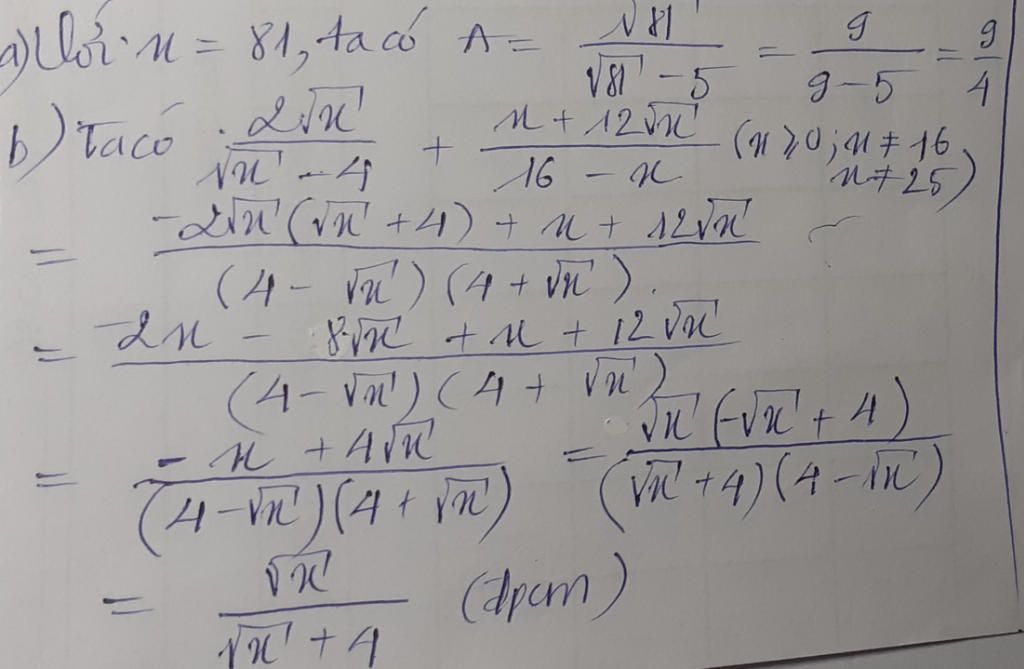 a) Với x = 81, ta có A = √81 / (√81 - 5) = 9 / (9 - 5) = 9/4
b) Ta có 2√x / (√x - 4) + (x + 12√x) / (16 - x) (x ≥ 0; x ≠ 16
x ≠ 25)
= (-2√x(√x + 4) + x + 12√x) / ((4 - √x)(4 + √x))
= (-2x - 8√x + x + 12√x) / ((4 - √x)(4 + √x))
= (-x + 4√x) / ((4 - √x)(4 + √x)) = √x(-√x + 4) / ((√x + 4)(4 - √x))
= √x / (√x + 4) (đpcm)